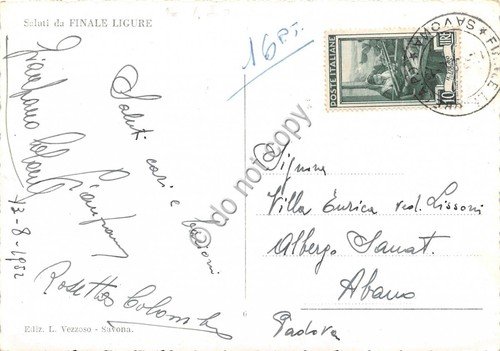 Saluti da FINALE LIGURE
16 PT.
POSTE ITALIANE
LIRE
10
SAVONA
Saluti cari e bacioni
Gianfranco
Rosetta Colombo
13-8-1952
Signora
Villa Enrica ved. Lissoni
Albergo Sanat.
Abano
Padova
© do not copy
6
Ediz. L. Vezzoso - Savona.